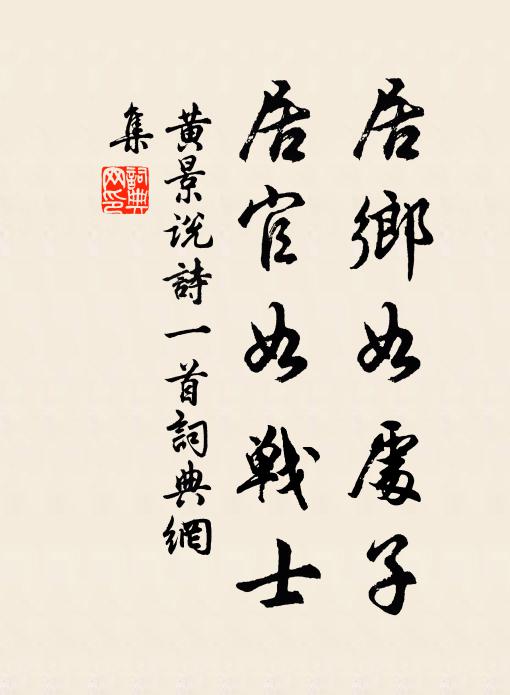 居鄉如處子
居官如戰士
黄景说詩一首詞典網
集
詞典网印